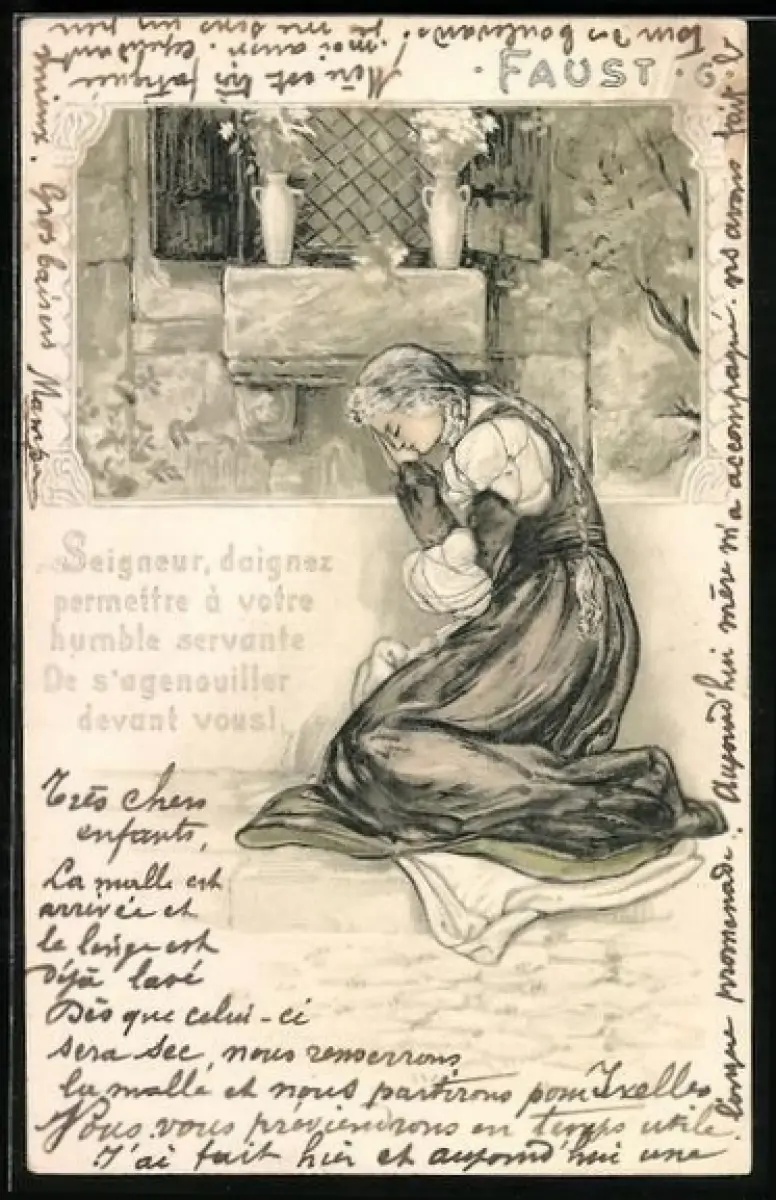 · FAUST · 6.
Seigneur, daignez
permettre à votre
humble servante
De s'agenouiller
devant vous!
Très chers
enfants,
La malle est
arrivée et
le linge est
déjà lavé
Dès que celui-ci
sera sec, nous renverrons
la malle et nous partirons pour Ixelles
Nous vous préviendrons en temps utile
J'ai fait hier et aujourd'hui une
longue promenade. Aujourd'hui mère m'a accompagné. ns avons fait le
tour des boulevards.
Mère est très fatiguée
moi aussi. Cependant je me sens un peu
mieux. Gros baisers